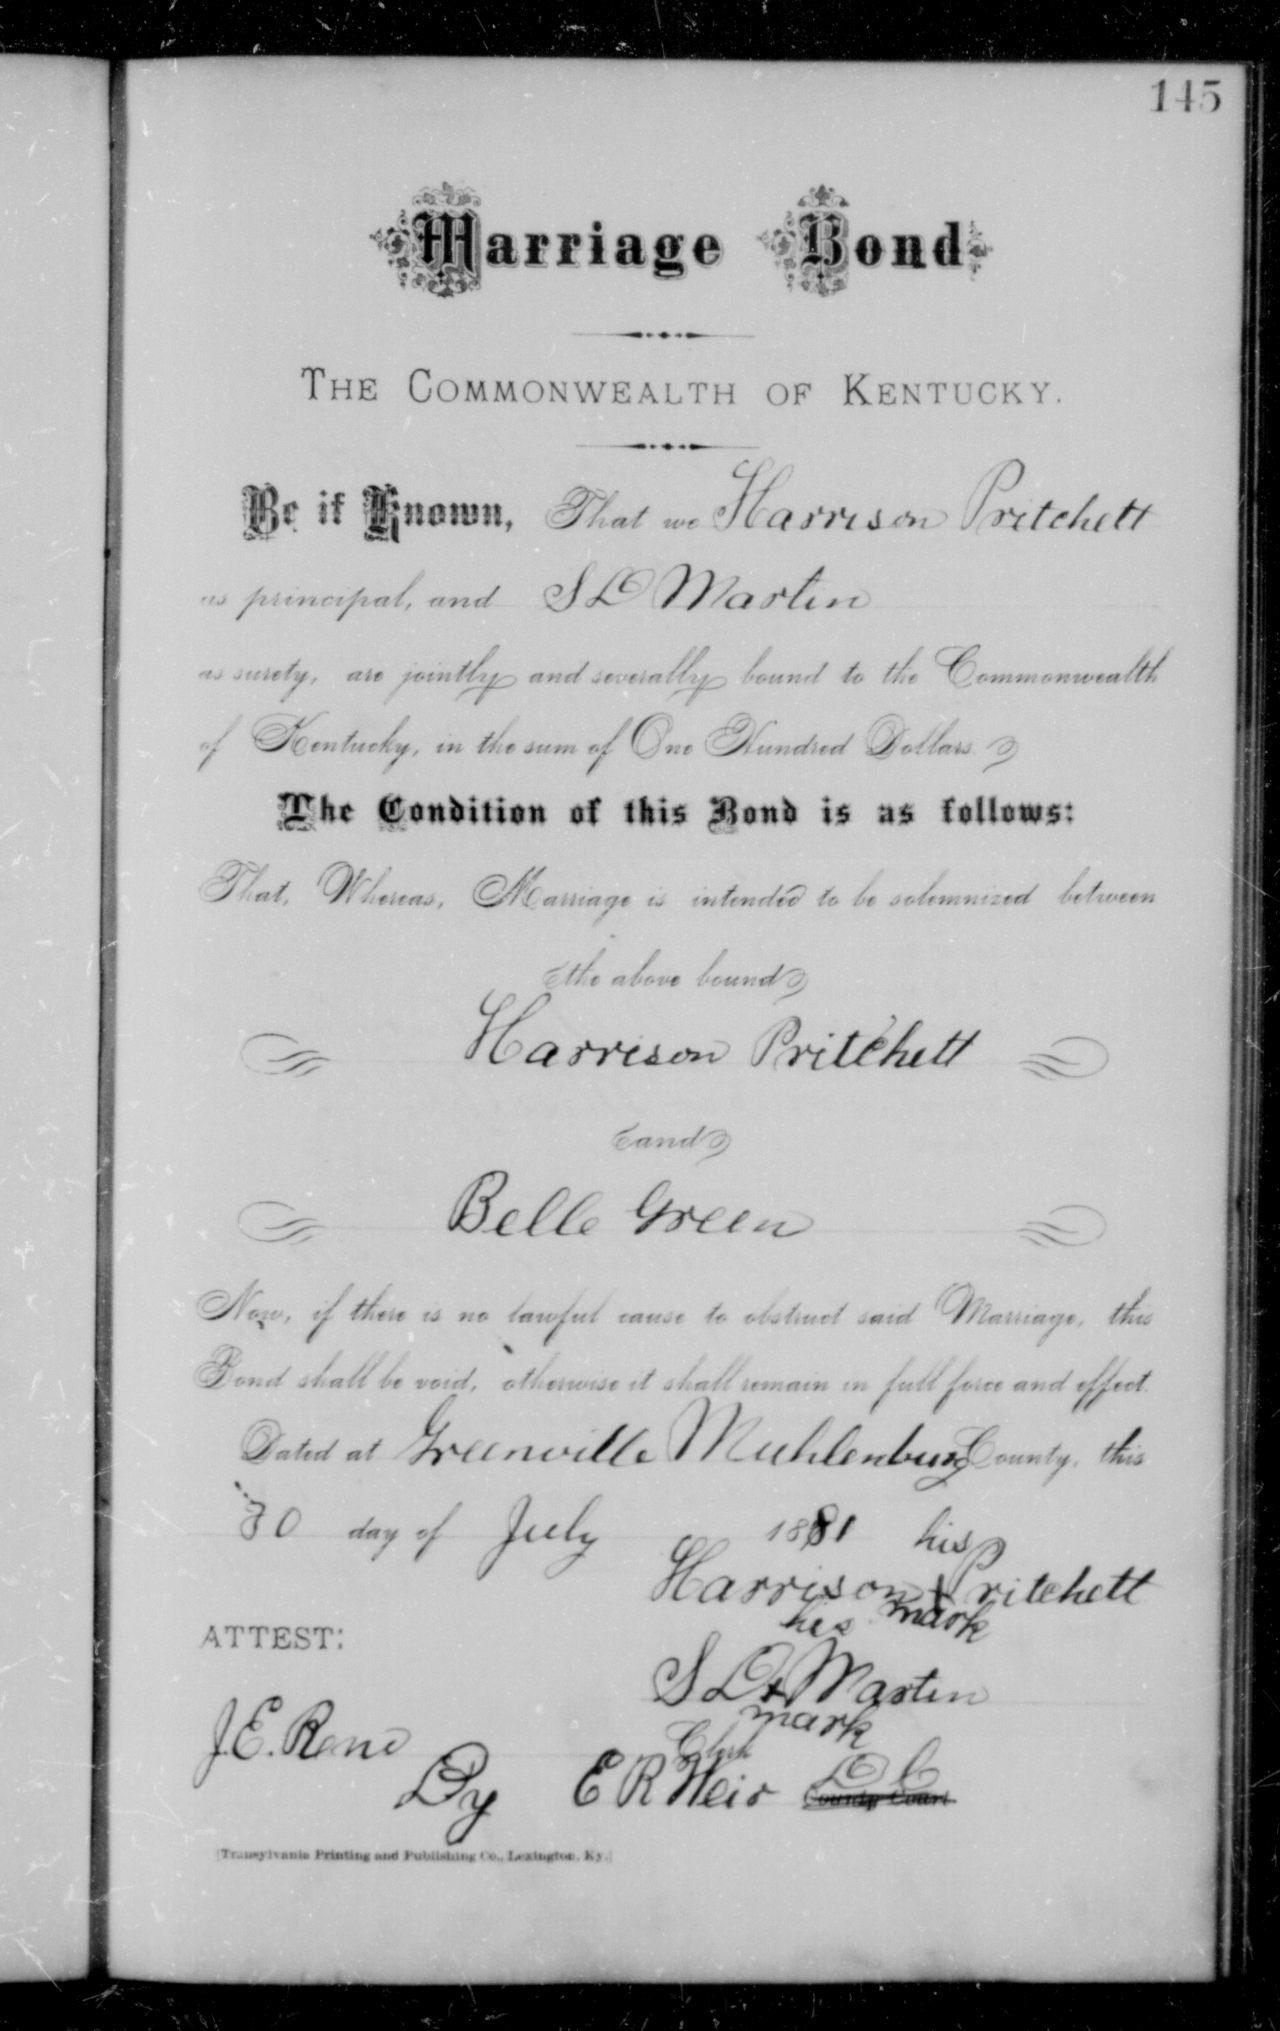 145
Marriage Bond
THE COMMONWEALTH OF KENTUCKY.
Be it Known, That we Harrison Pritchett
as principal, and S D Martin
as surety, are jointly and severally bound to the Commonwealth
of Kentucky, in the sum of One Hundred Dollars.
The Condition of this Bond is as follows:
That, Whereas, Marriage is intended to be solemnized between
the above bound
Harrison Pritchett
and
Belle Green
Now, if there is no lawful cause to obstruct said Marriage, this
Bond shall be void, otherwise it shall remain in full force and effect.
Dated at Greenville Muhlenburg County, this
30 day of July 1881
his
Harrison + Pritchett
mark
his
ATTEST:
S D + Martin
mark
J. E. Reno Clerk
By E R Weir D C
County Court
[Transylvania Printing and Publishing Co., Lexington, Ky.]